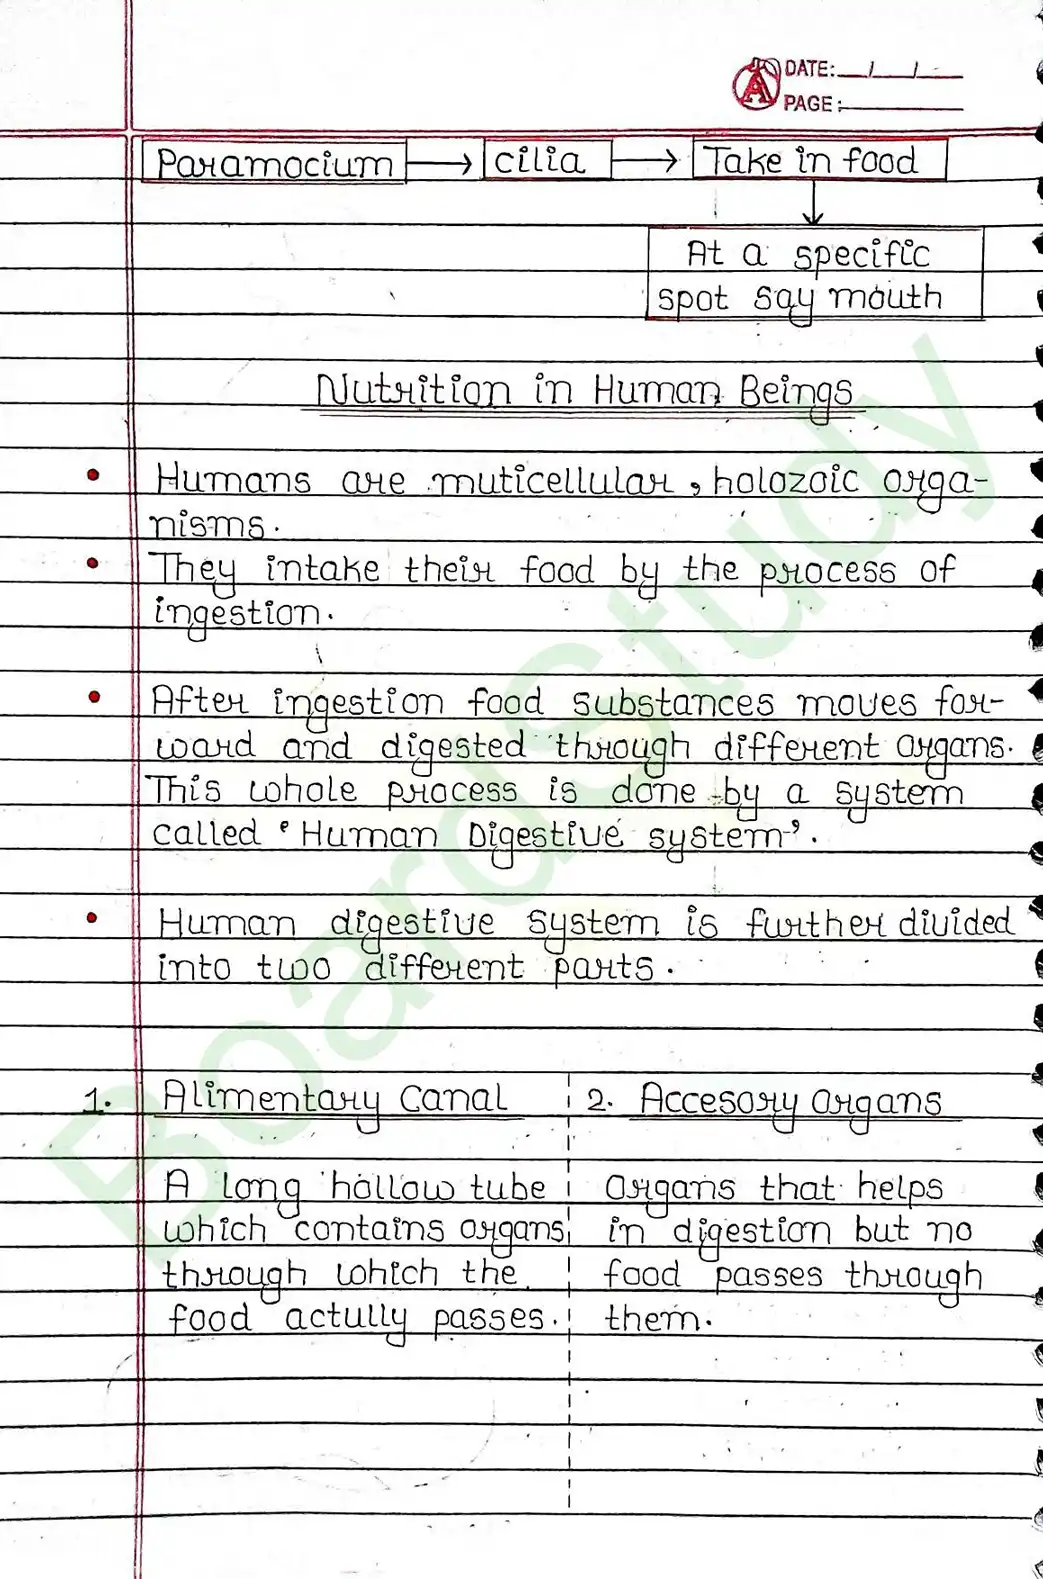 DATE: / /
PAGE:
Paramocium → cilia → Take in food
At a specific
spot say mouth
Nutrition in Human Beings
• Humans are muticellular, holozoic orga-
nisms.
• They intake their food by the process of
ingestion.
• After ingestion food substances moves for-
ward and digested through different organs.
This whole process is done by a system
called 'Human Digestive system'.
• Human digestive system is further divided
into two different parts.
1. Alimentary Canal
A long hollow tube
which contains organs
through which the
food actully passes.
2. Accesory Organs
Organs that helps
in digestion but no
food passes through
them.
BoardStudy